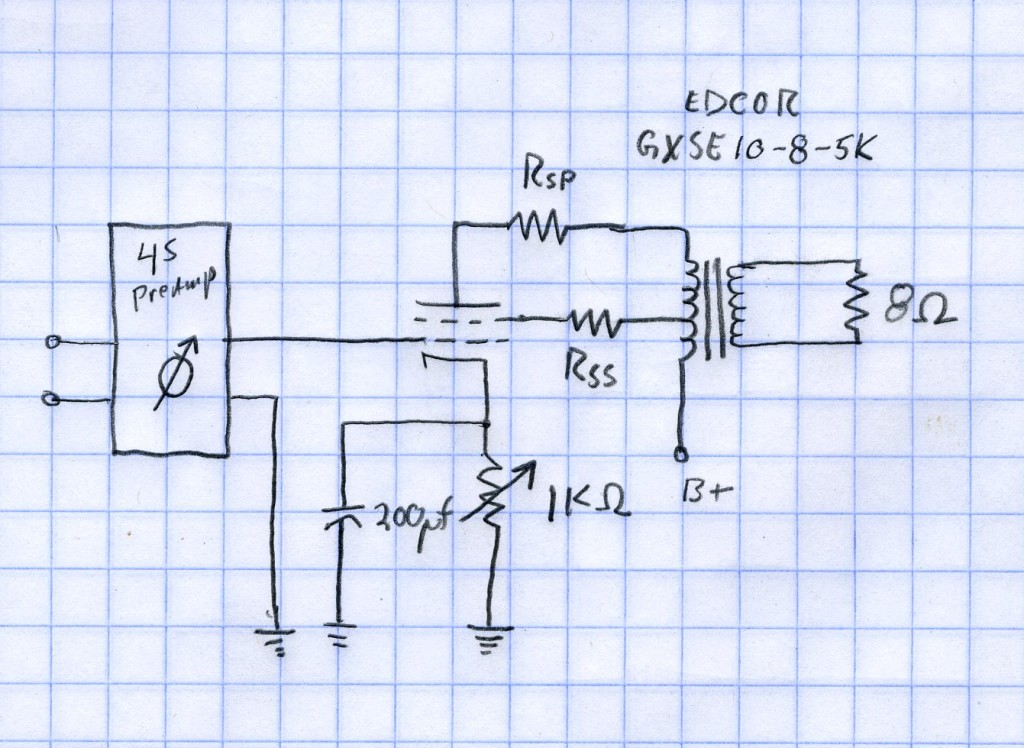 EDCOR
GXSE10-8-5K
RSP
4S
PreAmp
8Ω
RSS
B+
200μf
1KΩ